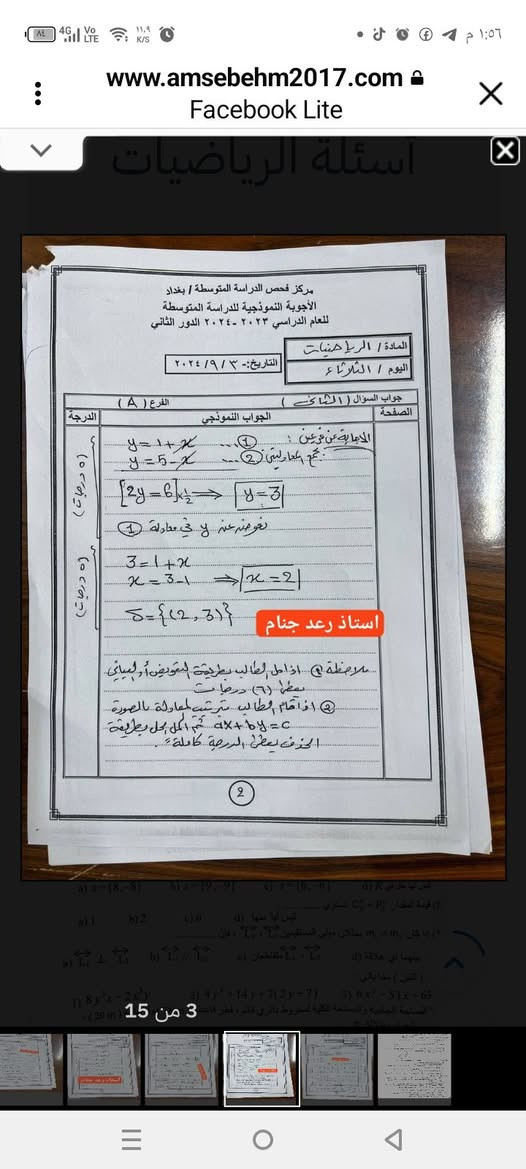 ١:٥٦ م
4G
Vo LTE
١١,٩ K/S
www.amsebehm2017.com
Facebook Lite
أسئلة الرياضيات
مركز فحص الدراسة المتوسطة / بغداد
الأجوبة النموذجية للدراسة المتوسطة
للعام الدراسي ٢٠٢٣ - ٢٠٢٤ الدور الثاني
المادة / الرياضيات
اليوم / الثلاثاء
التاريخ:- ٣ / ٩ / ٢٠٢٤
جواب السؤال ( الثاني ) الفرع ( A )
الصفحة
الجواب النموذجي
الدرجة
الاجابة عن فرعين :
y = 1 + x ... ①
y = 5 - x ... ②
بجمع المعادلتين
[2y = 6] × 1/2 ⟹ y = 3
(٥ درجات)
نعوض عن y في معادلة ①
3 = 1 + x
x = 3 - 1 ⟹ x = 2
(٥ درجات)
S = {(2, 3)}
استاذ رعد جنام
ملاحظة ① اذا حل الطالب بطريقة التعويض أو البياني
يعطى (٦) درجات
② اذا قام الطالب بترتيب المعادلة بالصورة
ax + by = c ثم اكمل الحل بطريقة
الحذف يعطى الدرجة كاملة.
2
a) 1 b) 2 c) 6 d) ليس أياً منها
3 من 15